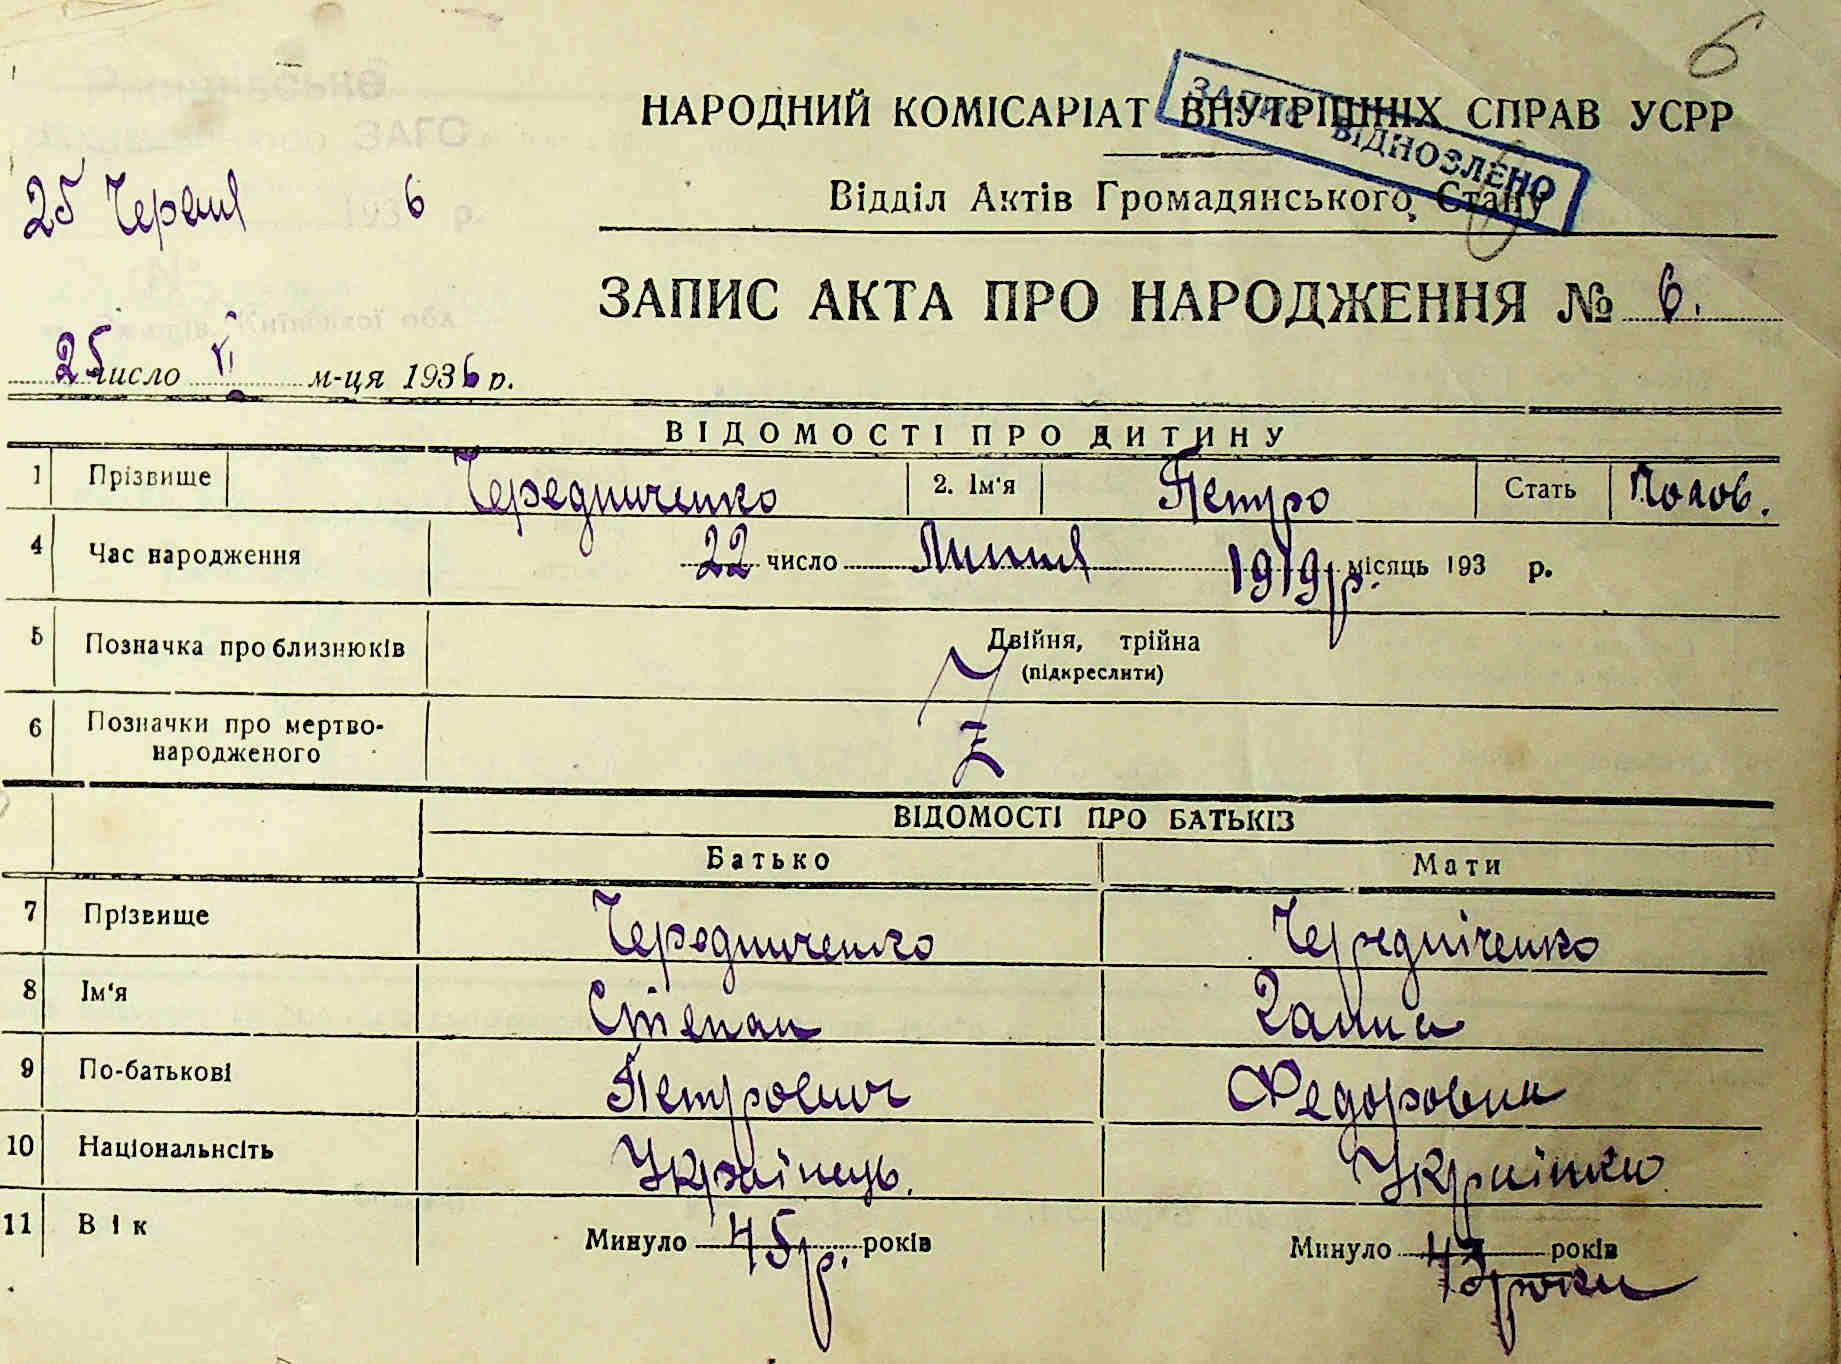 6
НАРОДНИЙ КОМІСАРІАТ ВНУТРІШНІХ СПРАВ УСРР
ЗАПИС ВІДНОВЛЕНО
Відділ Актів Громадянського Стану
25 Червня 6
ЗАПИС АКТА ПРО НАРОДЖЕННЯ № 6.
25 число VI м-ця 1936 р.
ВІДОМОСТІ ПРО ДИТИНУ
1 Прізвище Чередниченко 2. Ім'я Петро Стать Полов.
4 Час народження 22 число Липня 1919 р. місяць 193 р.
5 Позначка про близнюків Двійня, трійна
(підкреслити)
6 Позначки про мертво-
народженого Z
ВІДОМОСТІ ПРО БАТЬКІВ
Батько Мати
7 Прізвище Чередниченко Череднiченко
8 Ім'я Степан Ганна
9 По-батькові Петрович Федоровна
10 Національнсіть Українець. Українка
11 Вік Минуло 45 р. років Минуло 43 років
43 роки